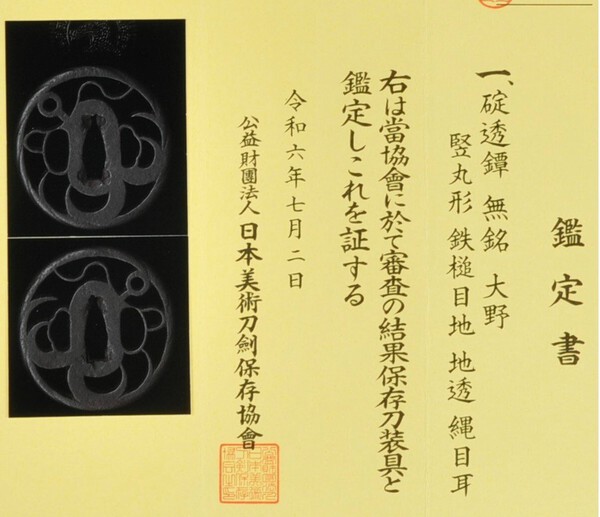 鑑定書
一、碇透鐔 無銘 大野
竪丸形 鉄槌目地 地透 縄目耳
右は當協會に於て審査の結果保存刀装具と
鑑定しこれを証する
令和六年七月二日
公益財團法人日本美術刀劍保存協會